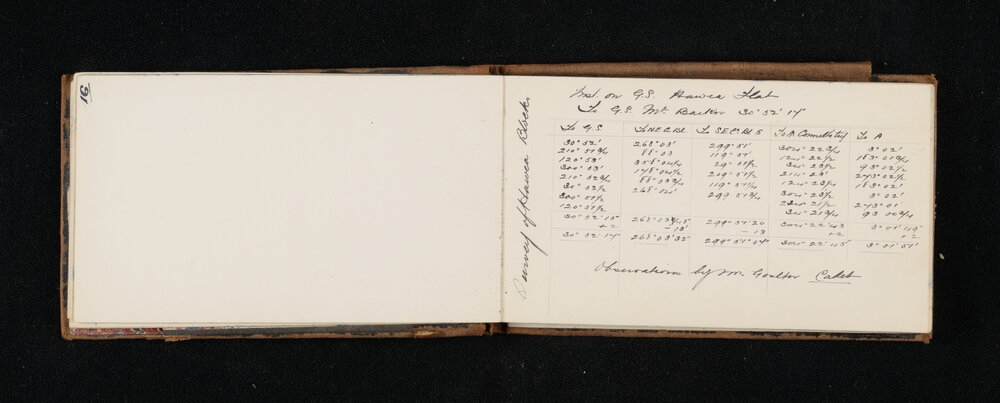 16
Survey of Hawea Block
Inst. on G.S. Hawea Flat
To G.S. Mt. Barker 30° 52' 17"
To G.S To N.E.C. Bl. To S.E Cr Bl 5 To To A
30° 52' 268° 03' 299° 51' 304° 22 3/4 3° 02'
210° 51 3/4 88° 03 119° 51' 124° 22 1/2 183° 01 3/4
120° 53' 358° 04 1/4 29° 51 1/2 34° 23 1/2 93° 02 1/2
300° 53' 178° 04 1/2 209° 51 1/2 214° 23' 273° 02 1/2
210° 52 3/4 88° 03 3/4 119° 51 1/4 124° 23 1/4 183° 02'
30° 52 1/2 268° 04' 299° 51 3/4 304° 23 1/2 3° 02'
300° 51 1/2 214° 21 1/2 273° 01'
120° 51 1/2 34° 21 3/4 93° 00 3/4
30° 52' 15 268° 03' 45 299° 51' 20 304° 22' 43 3° 01' 49"
+ 2 - 13' - 13 + 2 + 2
30° 52' 17" 268° 03' 32" 299° 51' 07" 304° 22' 45" 3° 01' 51"
Observations by Mr. Goulter Cadet